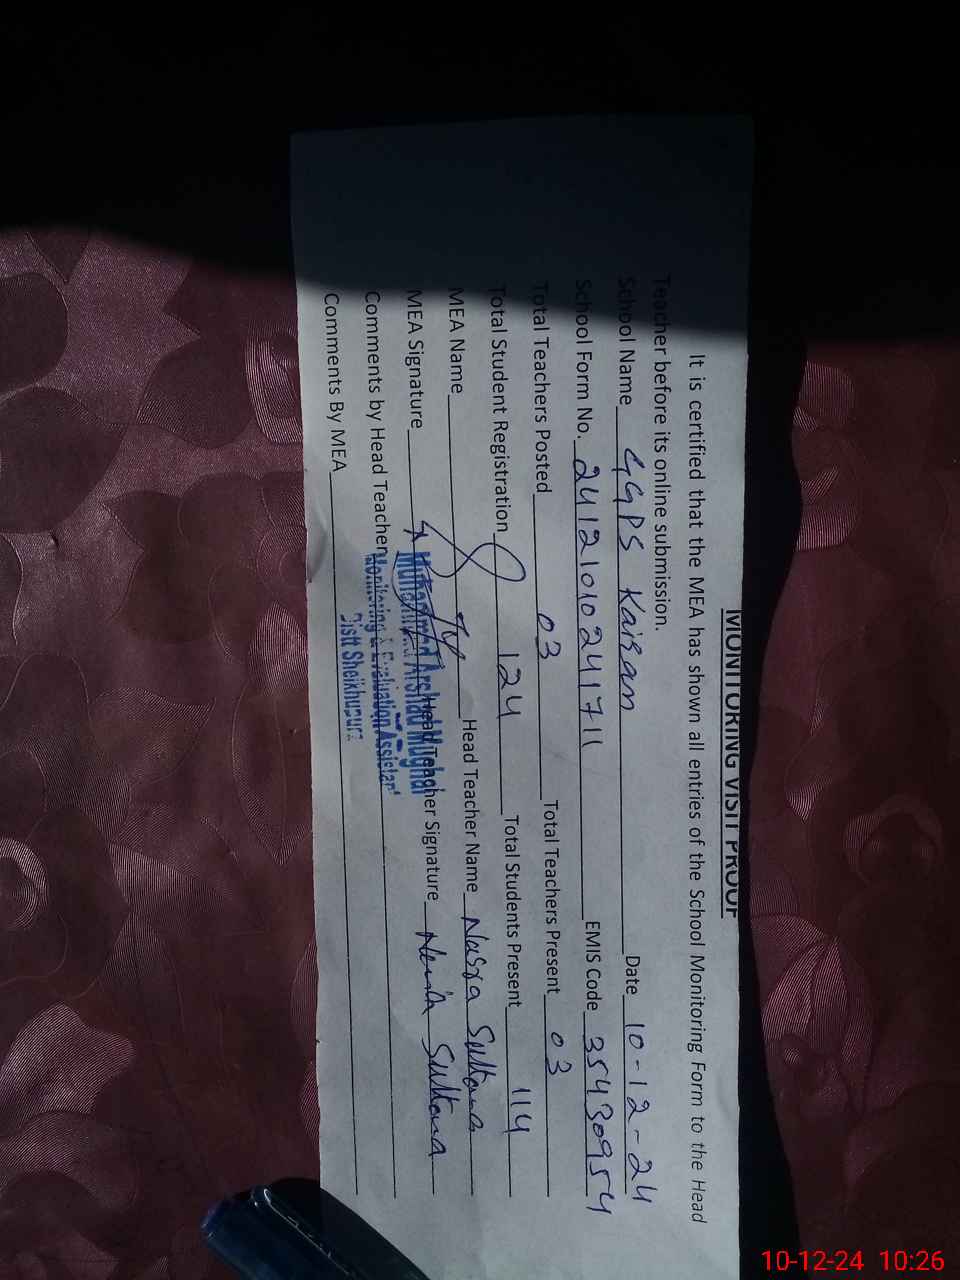 MONITORING VISIT PROOF
It is certified that the MEA has shown all entries of the School Monitoring Form to the Head
Teacher before its online submission.
School Name GGPS Kairan Date 10-12-24
School Form No. 2412101024171 EMIS Code 35430954
Total Teachers Posted 03 Total Teachers Present 03
Total Student Registration 124 Total Students Present 114
MEA Name Head Teacher Name Nasra Sultana
MEA Signature Head Teacher Signature Sultana
Muhammad Arshad Mughal
Comments by Head Teacher
Monitoring & Evaluation Assistant
Distt Sheikhupura
Comments By MEA
10-12-24 10:26